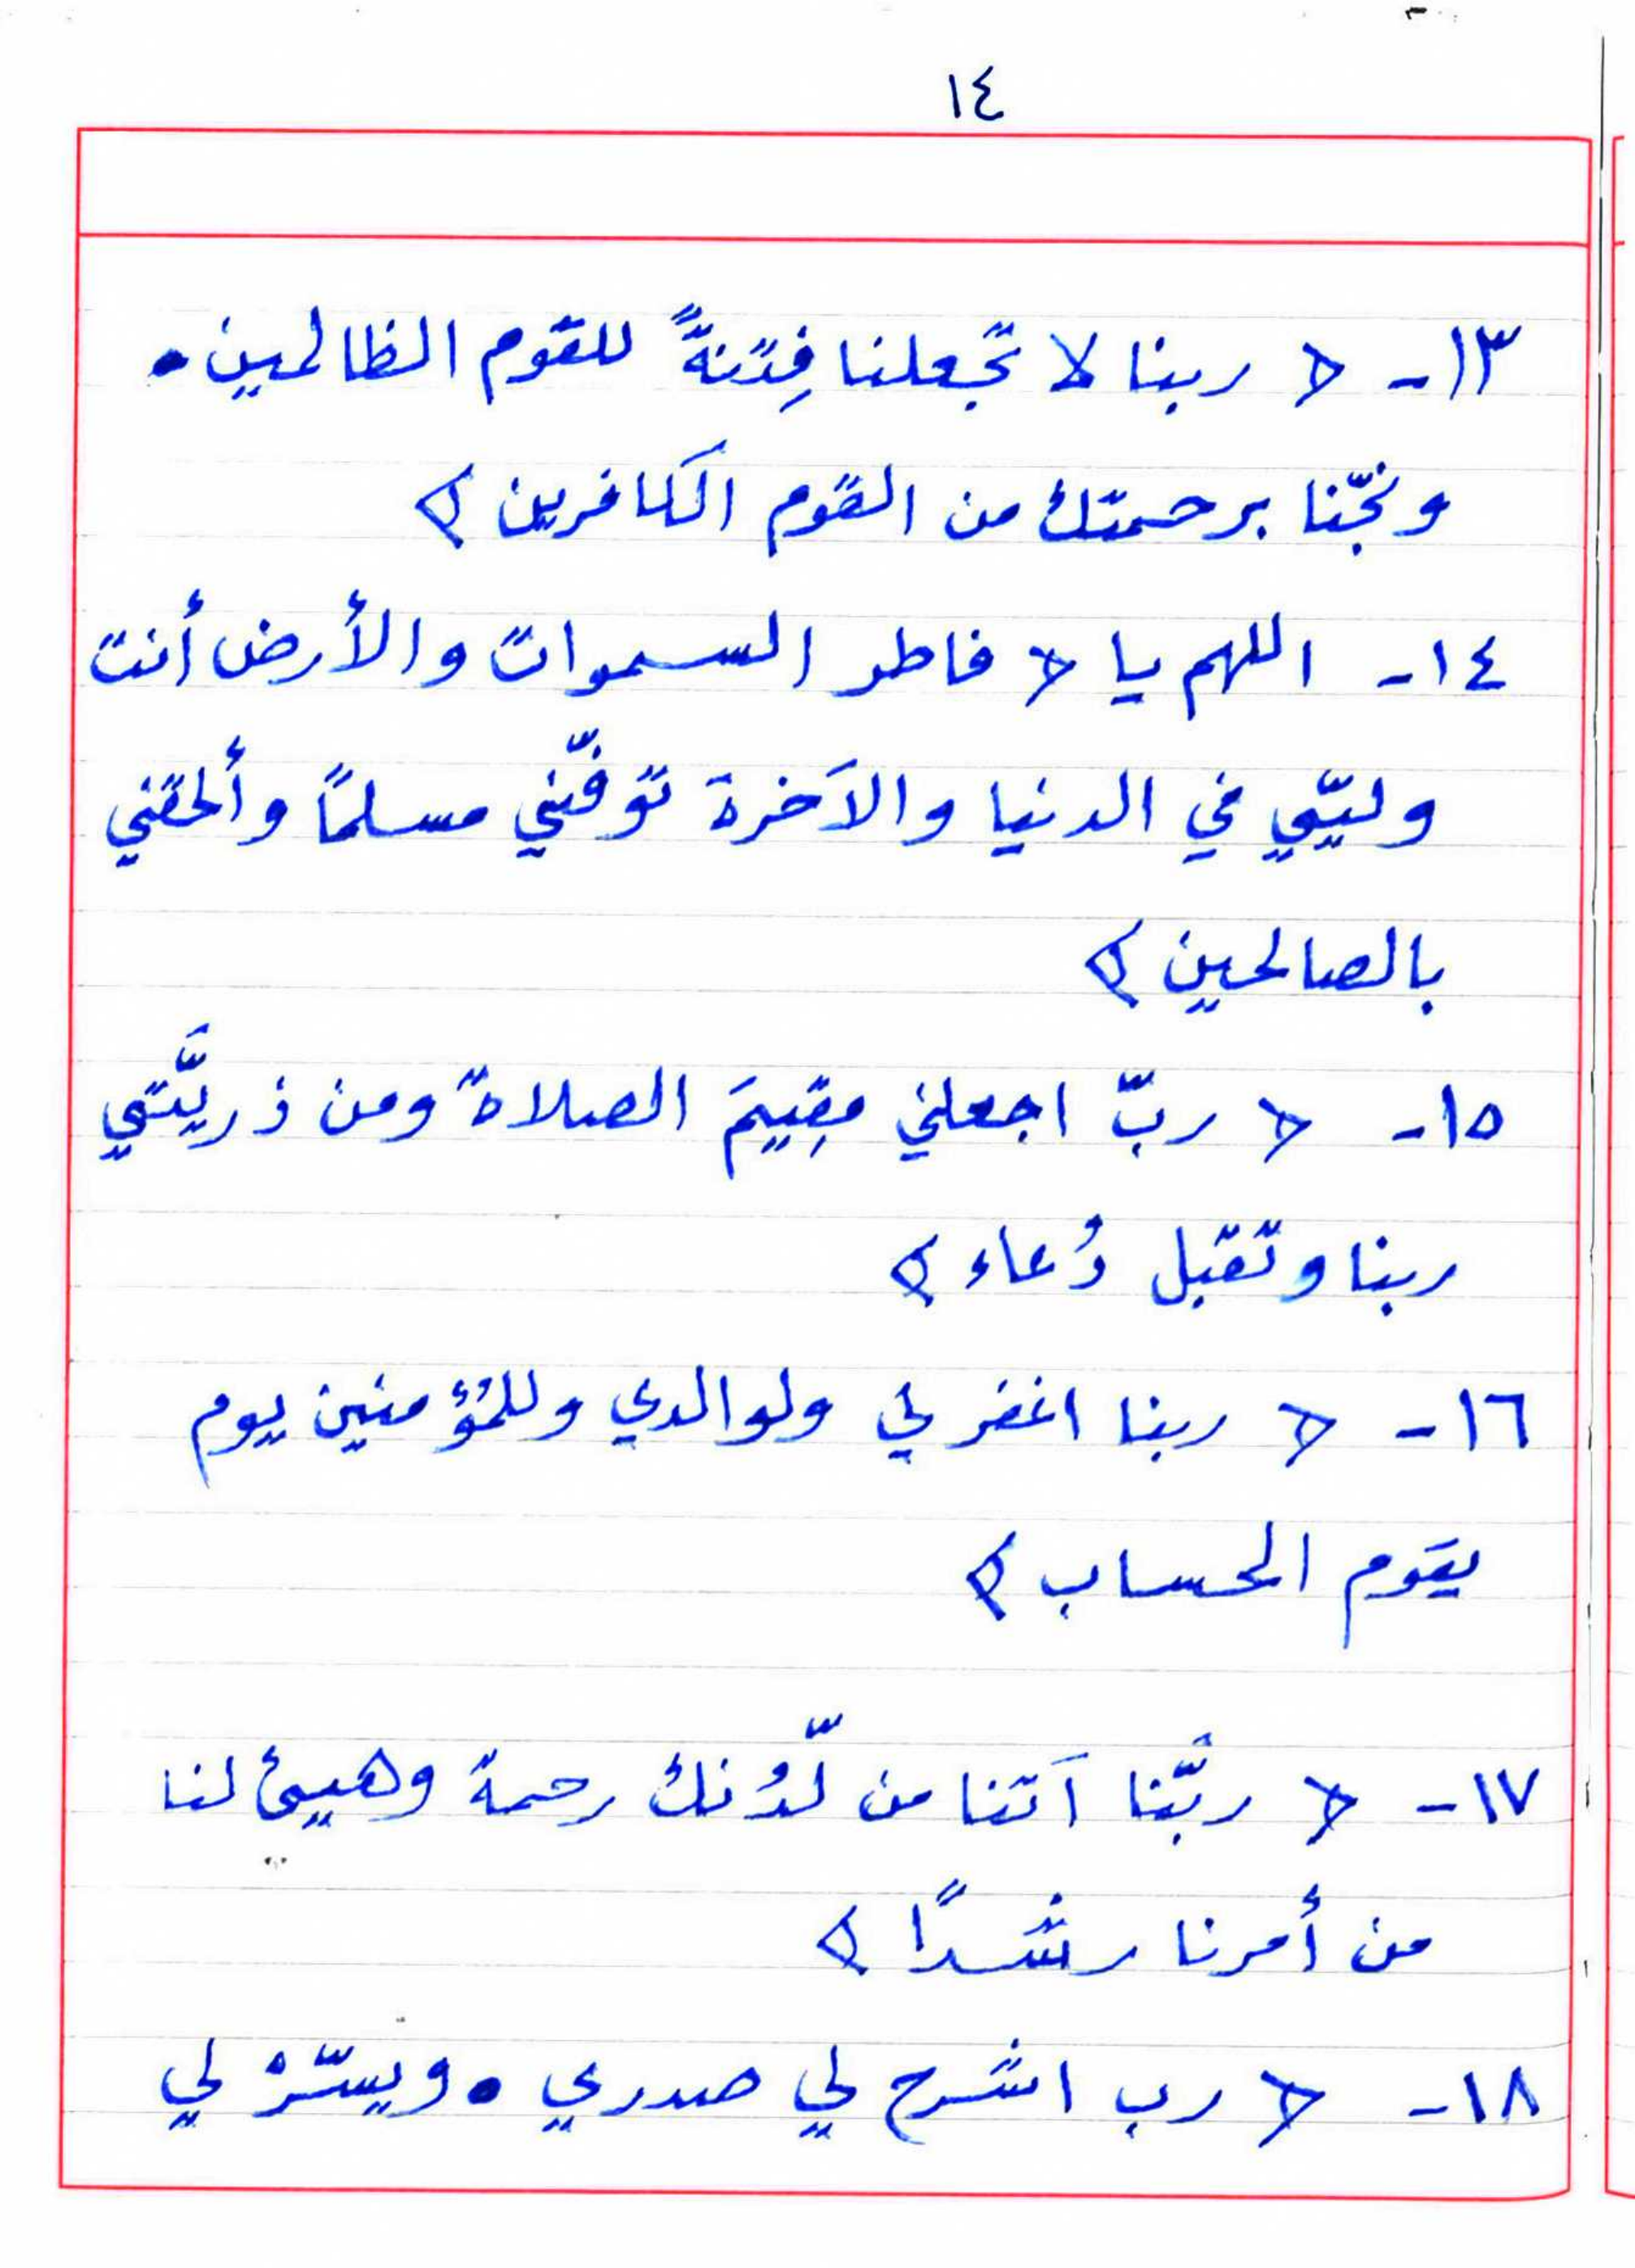 ١٤
١٣- ﴿ ربنا لا تجعلنا فِتنةً للقوم الظالمين •
ونجّنا برحمتك من القوم الكافرين ﴾
١٤- اللهم يا ﴿ فاطر السموات والأرض أنت
وليّي في الدنيا والآخرة توفّني مسلمًا وألحقني
بالصالحين ﴾
١٥- ﴿ ربّ اجعلني مقِيمَ الصلاة ومن ذريَّتي
ربنا وتقبل دُعاء ﴾
١٦- ﴿ ربنا اغفر لي ولوالدي وللمؤمنين يوم
يقوم الحساب ﴾
١٧- ﴿ ربَّنا آتنا من لّدُنك رحمة وهيئ لنا
من أمرنا رشدًا ﴾
١٨- ﴿ رب اشرح لي صدري • ويسّرْ لي